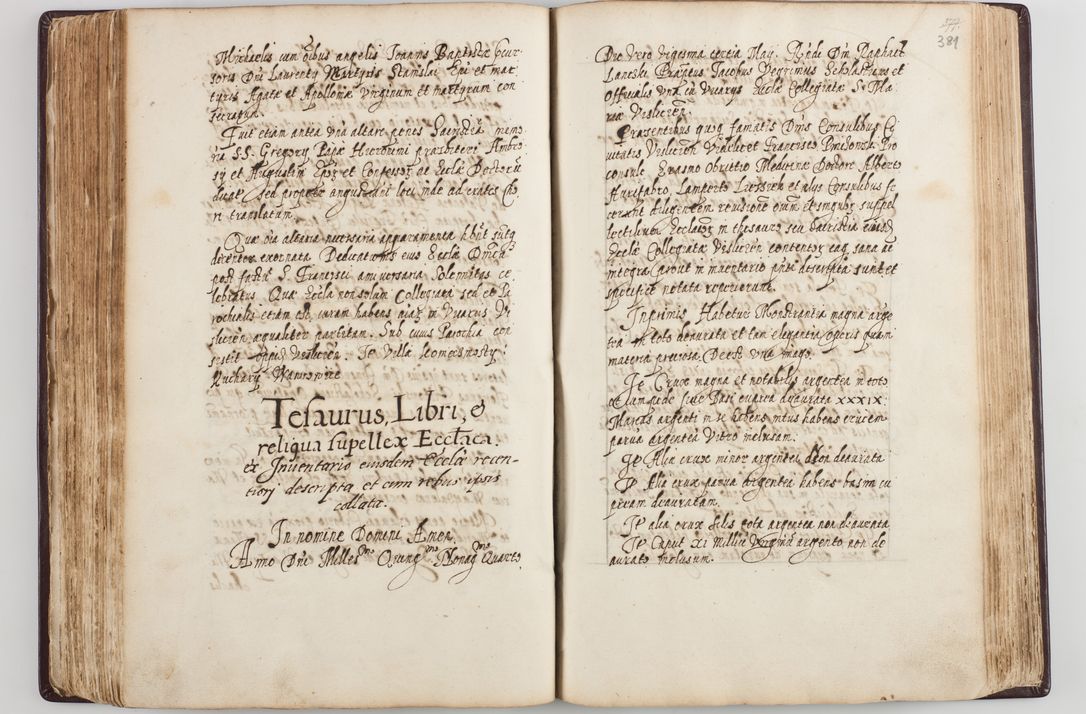 Michaelis cum oibus angelis Ioannis Baptistæ Precur-
soris Diui Laurentÿ Martyris Stanislai Epi et mar
tyris Agatæ et Apolloniæ Virginum et martyrum con
secratum.
Fuit etiam antea vnũ altare penes Sacristiã memo
riã S.S. Gregorÿ Papæ Hieronimi præsbiteri Ambro
sÿ et Augustini Epor et Confessor ac Eccłæ Doctorũ
dicat sed propter angustiam loci male ad
translatum.
Quæ oia altaria necessaria apparamenta
decenter exornata Dedicationis eius Eccłæ Dnica
post festũ S. Francisci anniuersaria Solemnitas ce
lebratur. Quæ Eccla non solum Collegiata sed et Pa
rochialis etiam est, curam habens in Vicarios Vi
slicien æqualiter partitam. Sub cuius Parochia con
sistit oppid Vislicien. Je Villa
Kuchary
Tesaurus, Libri, et
reliqua supellex Ecctca.
ex Inuentario eiusdem Eccłæ recen-
tiori descripta et cum rebus ipsis
collata.
In nomine Domini Amen.
Anno Dni Milles Quing Nonag Quarto
377.
389
Die vero vigesima tertia Maÿ. Rñdi Dni Raphael
Lanczki Præptus Jacobus Negrimus Scholasticus et
Officialis vna cũ Vicarÿs Eccłæ Collegiatæ S. Ma
riæ Vislicien.
Præsentibus quoq famatis Dnis Consulibus Ci
uitatis Vislicien Videlicet Francisco Pro
consule Erasmo Medicinæ Doctore Alberto
Aurifabro, Lamperto et alÿs Consulibus fe
cerunt diligentem reuisionẽ oium et singulor suppel
lectilium Ecclasticor in thesauro seu Sacristia eiusd
Eccłæ Collegiatæ Vislicien contentor eaq sana ac
integra prout in inuentario pñti descripta sunt et
specifice notata reperierunt.
Inprimis Habetur Monstrantia magna arge
tea in toto deaurata et tam elegantis operis quam
materia preciosa Deest vna imago.
Je Crux magna et notabilis argentea in toto
et cum pede siue Basi cuprea deaurata XXXIX.
Marcas argenti in se habens intus habens crucem
paruã argenteã Vitro inclusam.
Je Alia crux minor argentea deaurata
Je Alia crux parua argentea habens basim cu
pream deauratam.
Je alia crux tota argentea non deaurata
Je Caput xi milliũ Virginũ argento non de
aurato inclusum.